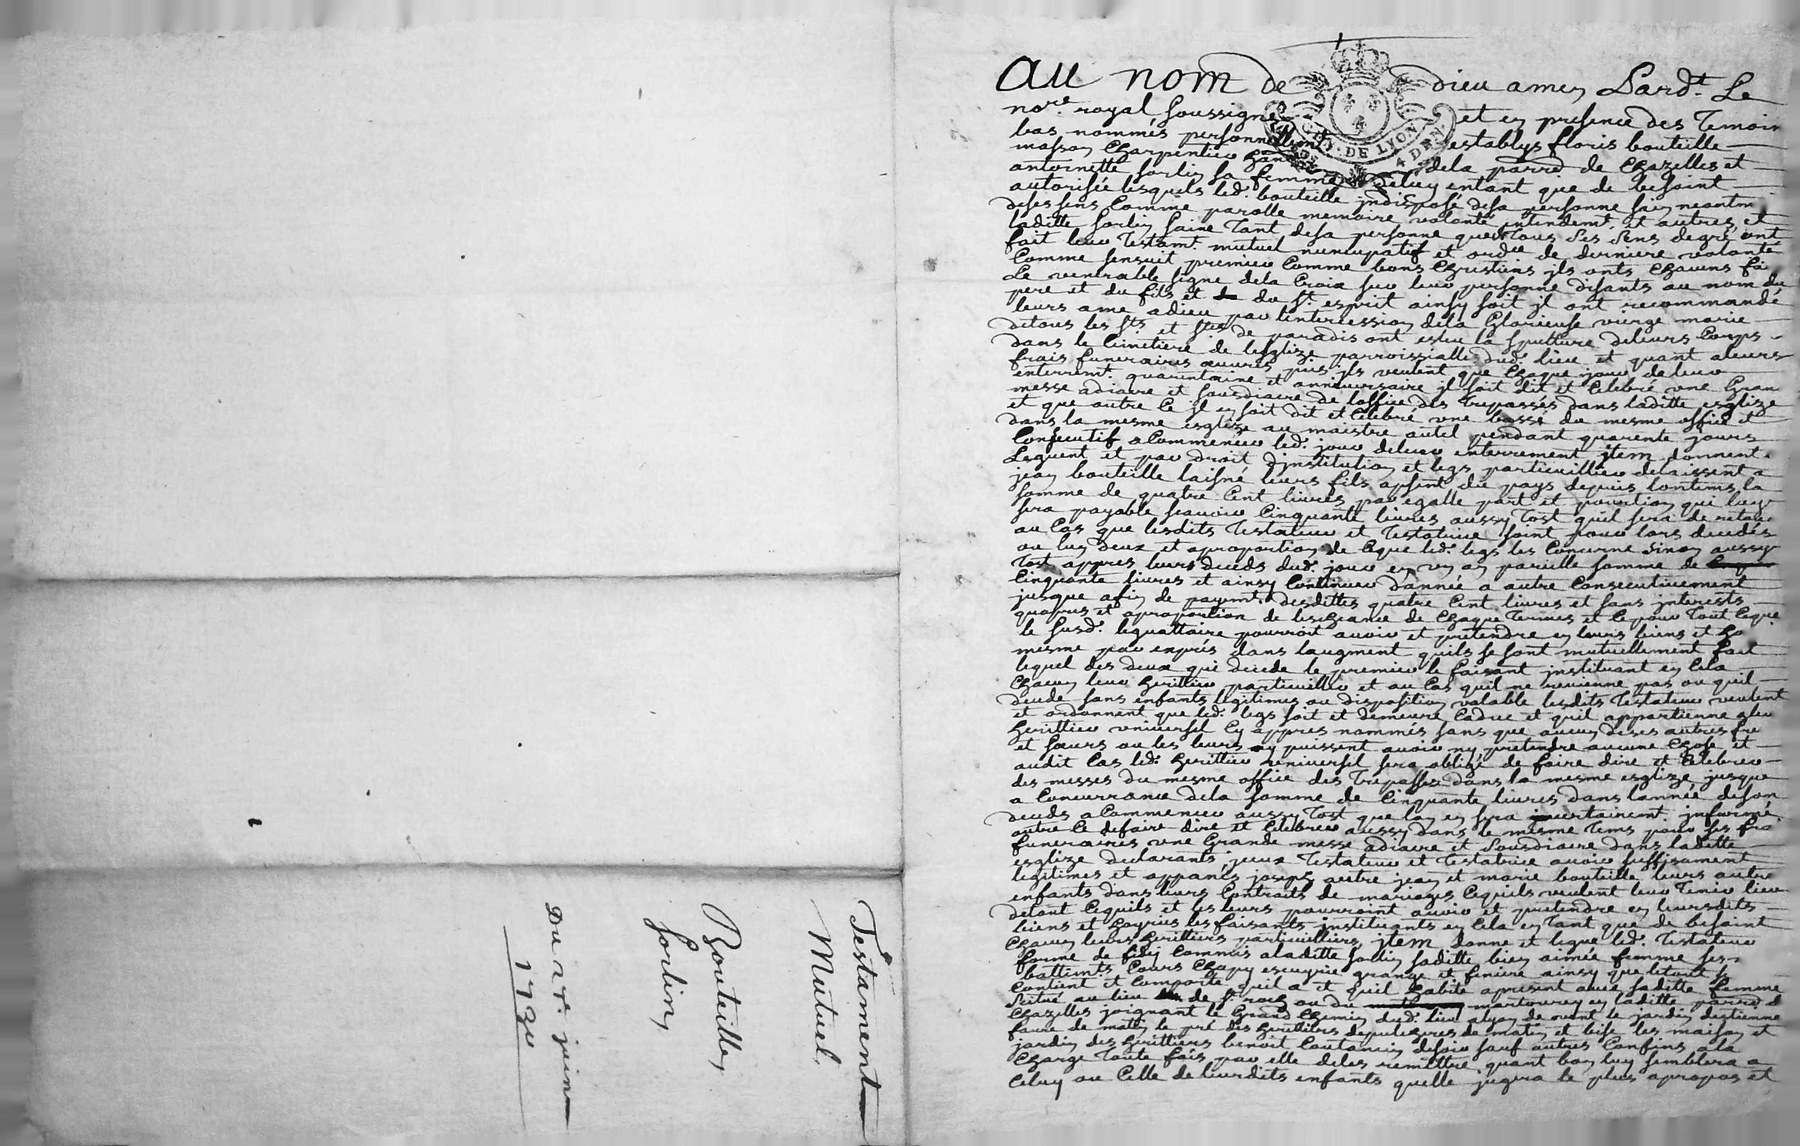 Testament
Mutuel.
Bouteille,
Sorlin,
Du 24 juin
1730
au nom de dieu amen Pardt. Le
nore. royal soussigné et en presence des Temoin
bas nommés personnellement establys floris bouteille
masson Charpentier de la parre. de Chazelles et
antoinette sorlin sa femme de luy entant que de besoint
autorisée lesquels led. bouteille indispose desa personne sein neantm
deses sens Comme parolle memoire volonté entendemt. et autres, et
laditte sorlin saine Tant desa personne que de Tous ses sens degré ont
fait leur Testamt. mutuel nuncupatif et ordre de derniere volonté
Comme sensuit premier Comme bons Chrestiens ils onts Chacuns fai
Le venerable signe dela Croix sur leur personne disants au nom du
pere et du fils et du st. esprit ainsy soit jl ont recommandé
leurs ame adieu par lintercession dela Glorieuse vierge marie
detous les sts. et stes. de paradis ont esleu la sepulture deleurs Corps
dans le Cimetiere de lesglize parroissialle dud. lieu et quant aleurs
frais funeraires œuvres pies jls veulent que Chaque jour de leur
enterremt. quarantaine et anniversaire jl soit dit et Celebré une Gran
messe adiacre et sousdiacre de loffice des Trepassés dans laditte esglize
et que outre Ce jl en soit dit et Celebré une basse du mesme office et
dans la mesme esglize au maistre autel pendant quarente jours
Consecutif aCommencer led. jour deleur enterrement jtem donnent
Leguent et par droit djnstitution et legs particuillier delaissent a
jean bouteille laisné leurs fils absent du pays depuis lontems la
somme de quatre Cent livres par egalle part et portion qui luy
sera payable scavoir Cinquante livres aussy Tost quil sera de retour
au Cas que lesdits Testateur et Testatrice soint pour lors decedés
ou lun deux et aproportion de Ceque led. legs les Concerne sinon aussy
Tost appres leurs deceds dud. jour en un an pareille somme de
Cinquante livres et ainsy Continuer dannée a autre Consecutivement
jusque afin de payemt. desdittes quatre Cent livres et sans jnterests
quapres et aproportion de lescheance de Chaque Termes et Cepour Tout Ceque
le susd. leguattaire pourroit avoir et pretendre en leurs biens et
mesme par exprés dans laugment quils se sont mutuellement fait
lequel des deux qui decede le premier le faisant jnstituant en Cela
Chacun leur heritier particuillier et au Cas quil ne revienne pas ou quil
decede sans enfants legitimes ou disposition valable lesdits Testateur veulent
et ordonnent que led. legs soit et demeure Caduc et quil appartienne aleur
heritier universel Cy appres nommés sans que aucun deses autres fre
et sœurs ou les leurs ny puissent avoir ny pretendre aucune Chose et
audit Cas led. heritier universel sera obligé de faire dire et Celebrer
des messes du mesme office des Trepassés dans la mesme esglize jusque
a Concurrance dela somme de Cinquante livres dans lannée deson
deceds aCommencer aussy Tost que lon en sera certainemt. jnformé
outre Ce defaire dire et Celebrer aussy dans le mesme Tems pour ses frais
funeraires une Grande messe adiacre et sousdiacre dans laditte
esglize declarants jceux Testateur et Testatrice avoir suffisament
legitimes et appanés joseph autre jean et marie bouteille leurs autre
enfants dans leurs Contrats de mariages Cequils veulent leur Tenir lieu
detout Cequils et les leurs pourroint avoir et pretendre en leursdits
biens et hoyries les faisants jnstituants en Cela en Tant que de besoint
Chacun leurs heritiers particuilliers jtem donne et legue led. Testateur
forme de fidey Commis aladitte sorlin saditte bien aimée femme ses
battimts. Cours Chapy escuyrie grange et feniere ainsy que letout se
Contient et Comporte quil a et quil habite apresent avec saditte femme
scitué au lieu de st. roch ou du martourey en laditte parre. de
Chazelles joignant le Grand Chemin dud. lieu alyon de vent le jardin destienne
faure de matin le pré des heritiers depuihgros de matin et bise les maison et
jardin des heritiers benoit Coutancin desoir sauf autres Confins ala
Charge Toute fois par elle deles remettre quant bon luy semblera a
Celuy ou Celle de leursdits enfants quelle jugera le plus apropos et